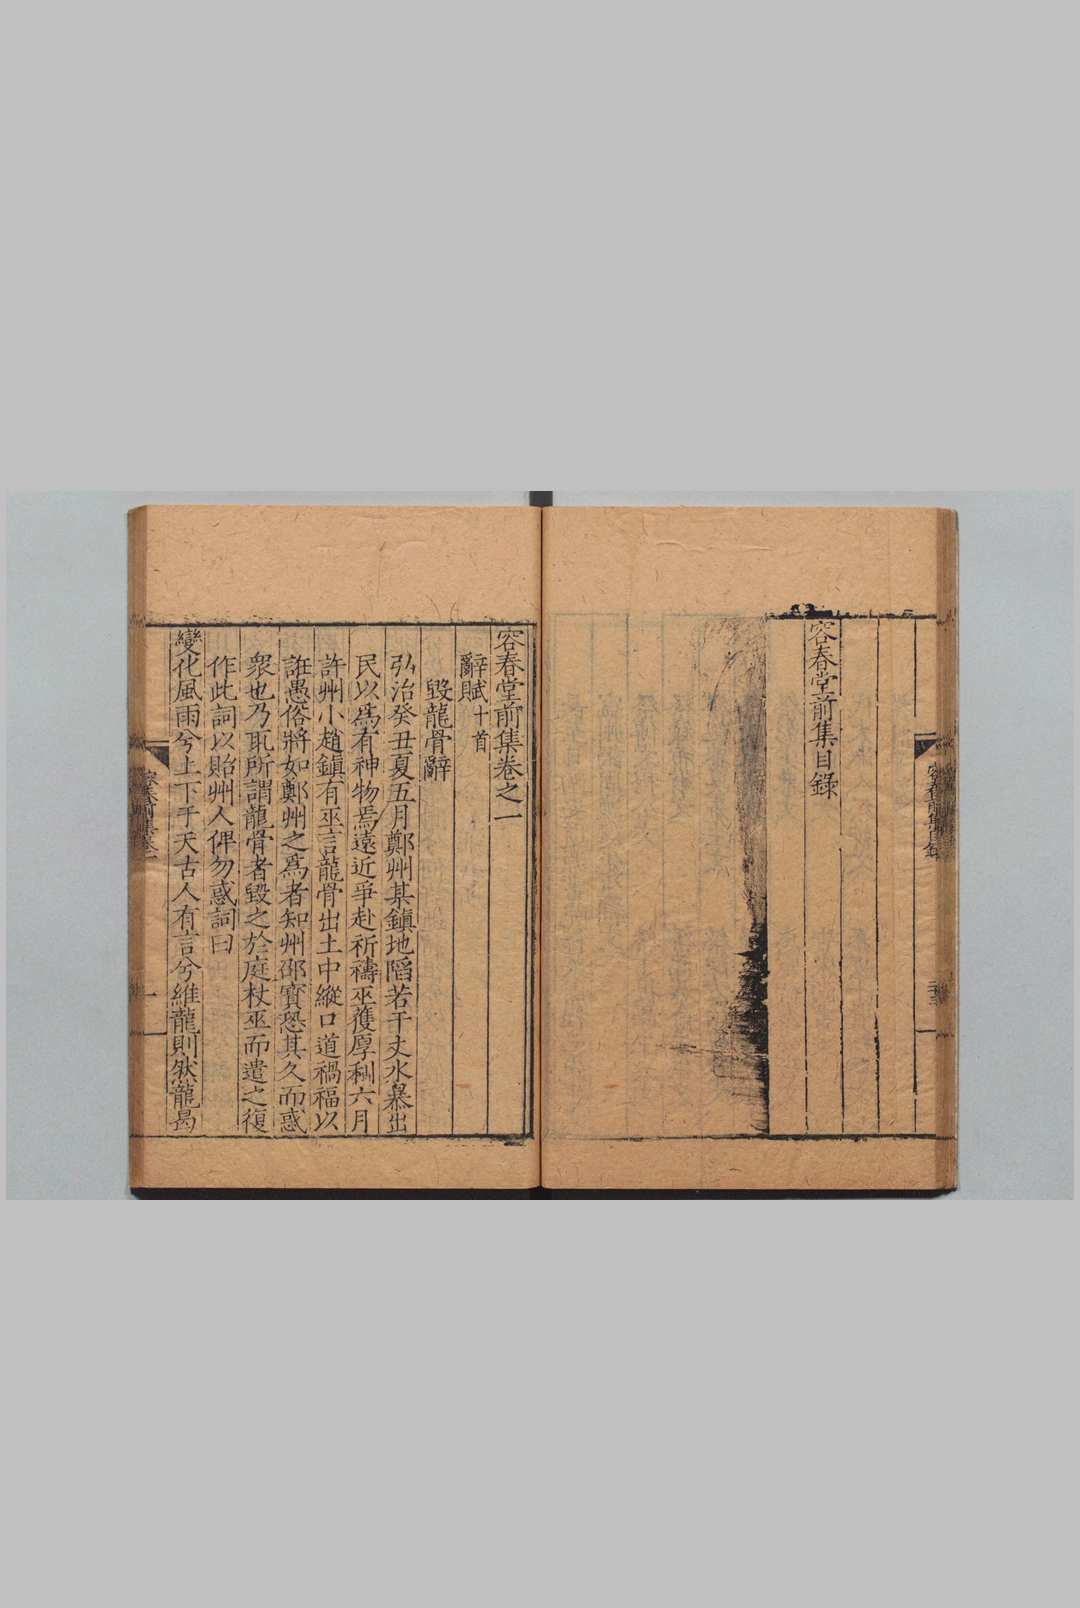 容春堂前集目錄
容春堂前集卷之一
辭賦十首
毀龍骨辭
弘治癸丑夏五月鄭州某鎮地陷若干丈水暴出
民以爲有神物焉遠近爭赴祈禱巫獲厚利六月
許州小趙鎮有巫言龍骨出土中縱口道禍福以
誑愚俗將如鄭州之爲者知州邵寶恐其久而惑
衆也乃取所謂龍骨者毀之於庭杖巫而遣之復
作此詞以貽州人俾勿惑詞曰
變化風雨兮上下乎天古人有言兮維龍則然龍曷